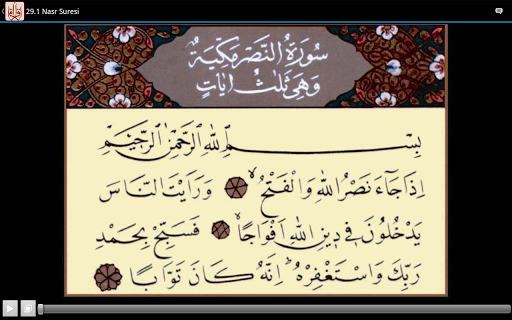 29.1 Nasr Suresi
سُورَةُ النَّصْرِ مَكِّيَّةٌ
وَهِيَ ثَلٰثُ اٰيَاتٍ
بِسْمِ اللهِ الرَّحْمٰنِ الرَّحِيْمِ
اِذَا جَاءَ نَصْرُ اللهِ وَالْفَتْحُ ۙ وَرَاَيْتَ النَّاسَ
يَدْخُلُونَ فِي دِينِ اللهِ اَفْوَاجًا ۙ فَسَبِّحْ بِحَمْدِ
رَبِّكَ وَاسْتَغْفِرْهُ ۜ اِنَّهُ كَانَ تَوَّابًا